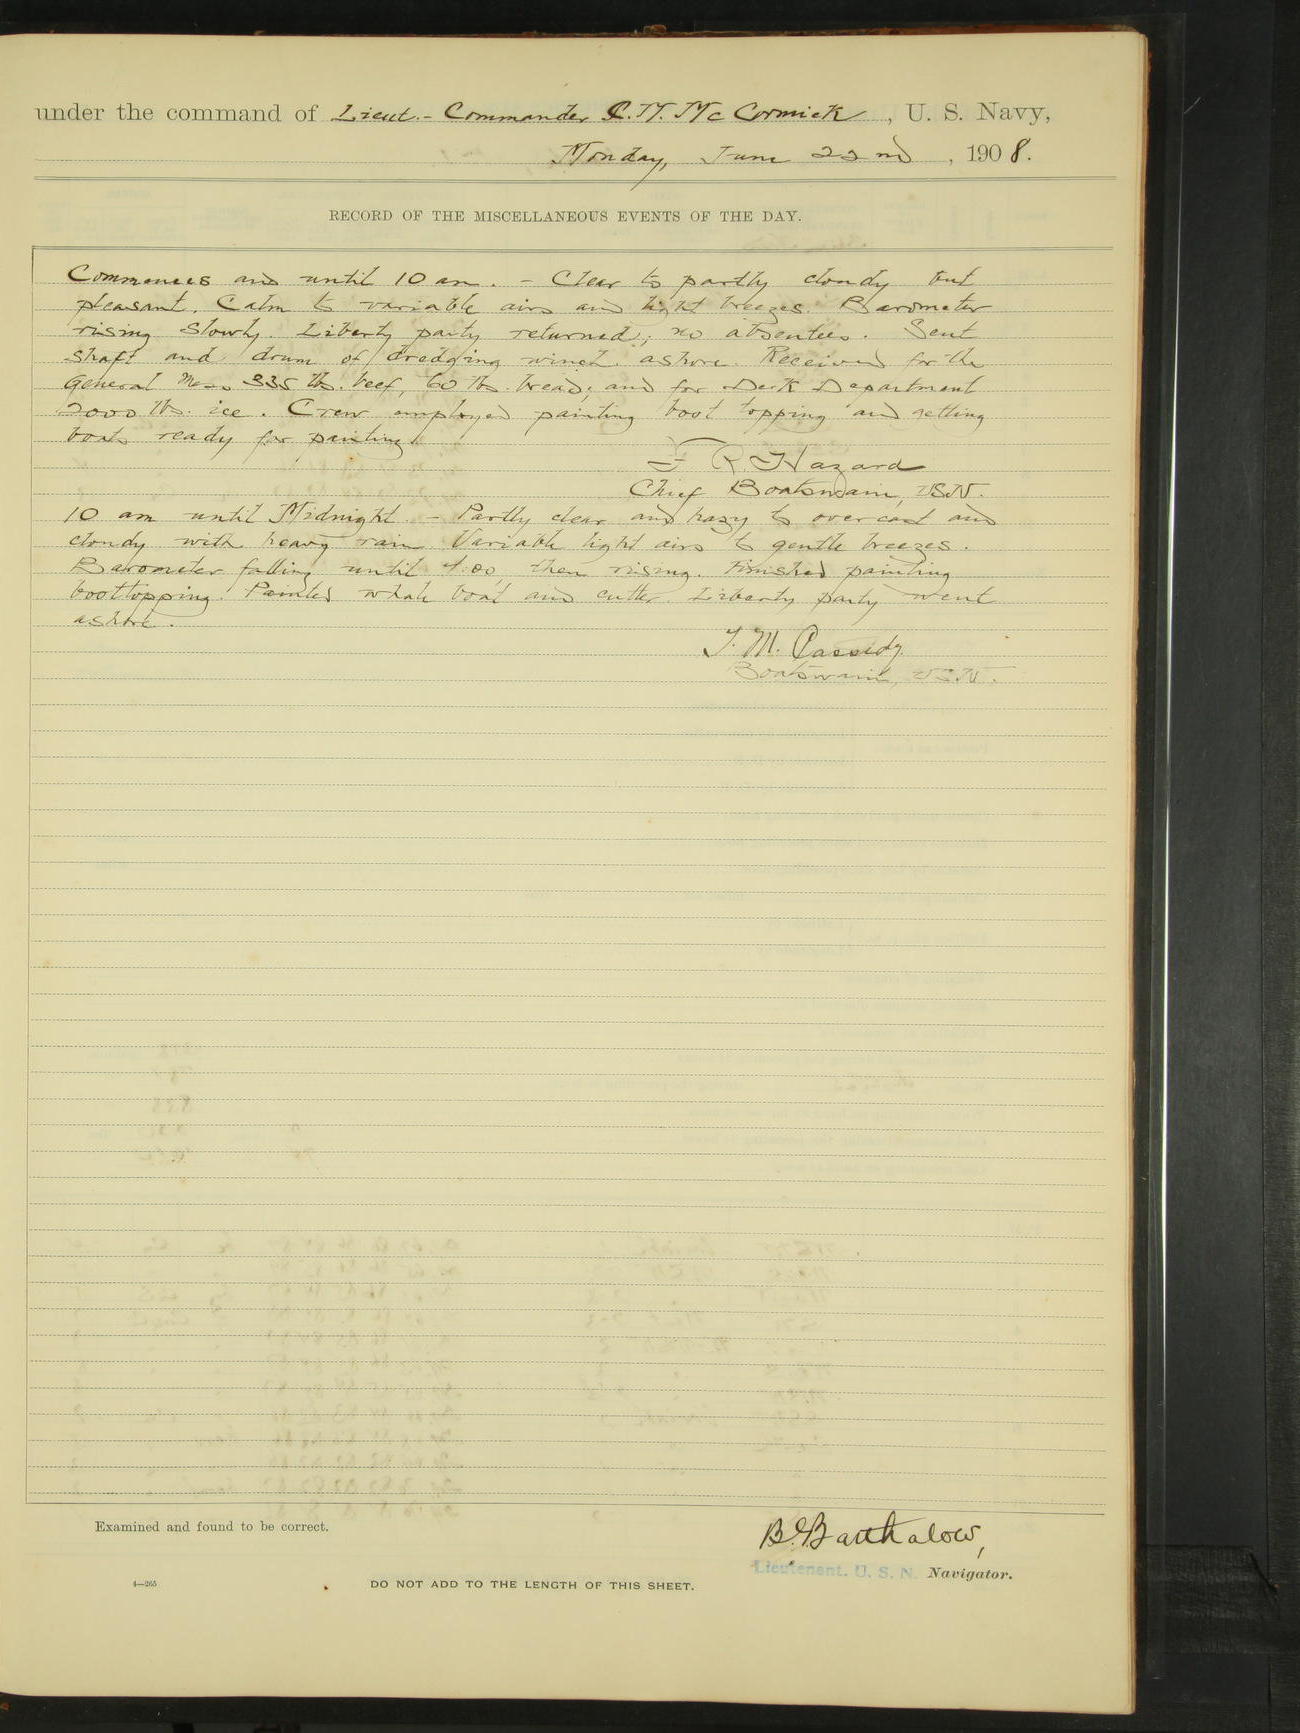 under the command of Lieut.- Commander C. M. McCormick, U. S. Navy,
Monday, June 22nd, 1908.
RECORD OF THE MISCELLANEOUS EVENTS OF THE DAY.
Commences and until 10 am. - Clear to partly cloudy but
pleasant. Calm to variable airs and light breezes. Barometer
rising slowly. Liberty party returned; no absentees. Sent
shaft and drum of dredging winch ashore. Received for the
General Mess 335 lbs. beef, 60 lbs bread; and for Deck Department
2000 lbs. ice. Crew employed painting boot topping and getting
boats ready for painting.
F R. Hazard
Chief Boatswain, USN.
10 am until Midnight - Partly clear and hazy to overcast and
cloudy with heavy rain. Variable light airs to gentle breezes.
Barometer falling until 4:00, then rising. Finished painting
boottopping. Painted whale boat and cutter. Liberty party went
ashore.
T. M. Cassidy.
Boatswain, USN.
Examined and found to be correct.
B. Barthalow,
Lieutenant. U. S. N. Navigator.
4—265
DO NOT ADD TO THE LENGTH OF THIS SHEET.